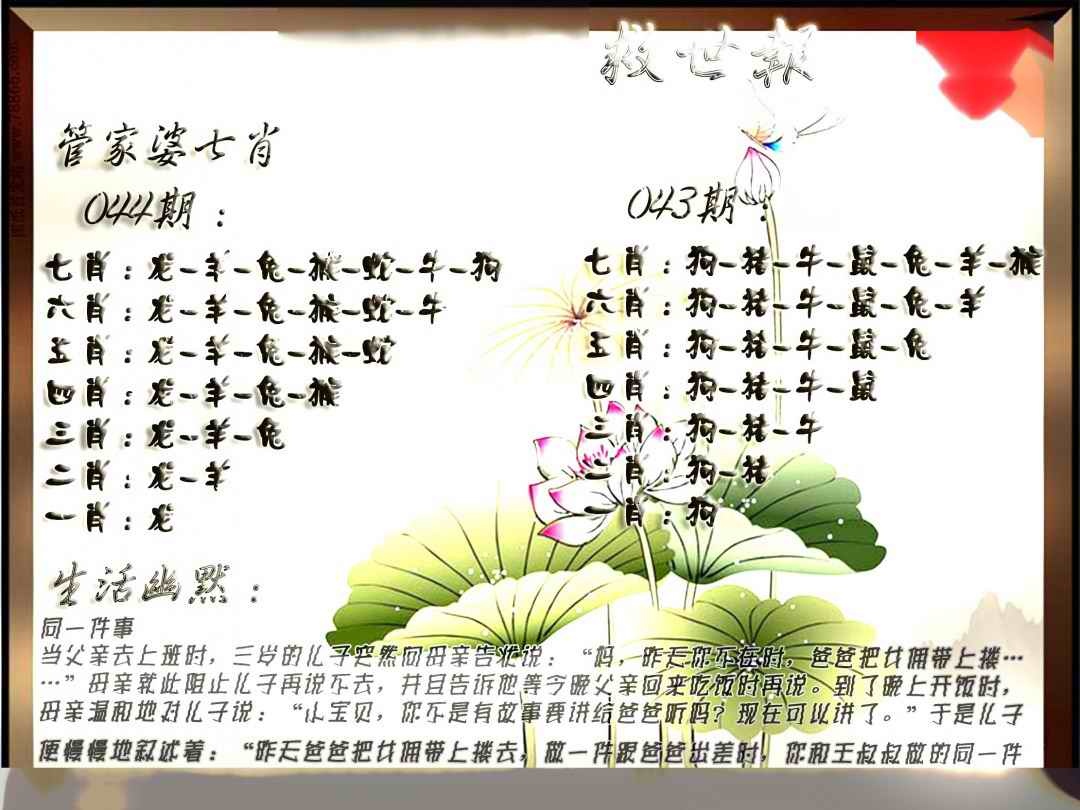 救世報
管家婆七肖
044期：
七肖：龙-羊-兔-猴-蛇-牛-狗
六肖：龙-羊-兔-猴-蛇-牛
五肖：龙-羊-兔-猴-蛇
四肖：龙-羊-兔-猴
三肖：龙-羊-兔
二肖：龙-羊
一肖：龙
043期：
七肖：狗-猪-牛-鼠-兔-羊-猴
六肖：狗-猪-牛-鼠-兔-羊
五肖：狗-猪-牛-鼠-兔
四肖：狗-猪-牛-鼠
三肖：狗-猪-牛
二肖：狗-猪
一肖：狗
生活幽默：
同一件事
当父亲去上班时，三岁的儿子突然向母亲告状说：“妈，昨天你不在时，爸爸把女佣带上搂…
…”母亲就此阻止儿子再说下去，并且告诉他等今晚父亲回来吃饭时再说。到了晚上开饭时，
母亲温和地对儿子说：“小宝贝，你不是有故事要讲给爸爸听吗？现在可以讲了。”于是儿子
便慢慢地叙述着：“昨天爸爸把女佣带上搂去，做一件跟爸爸出差时，你和王叔叔做的同一件